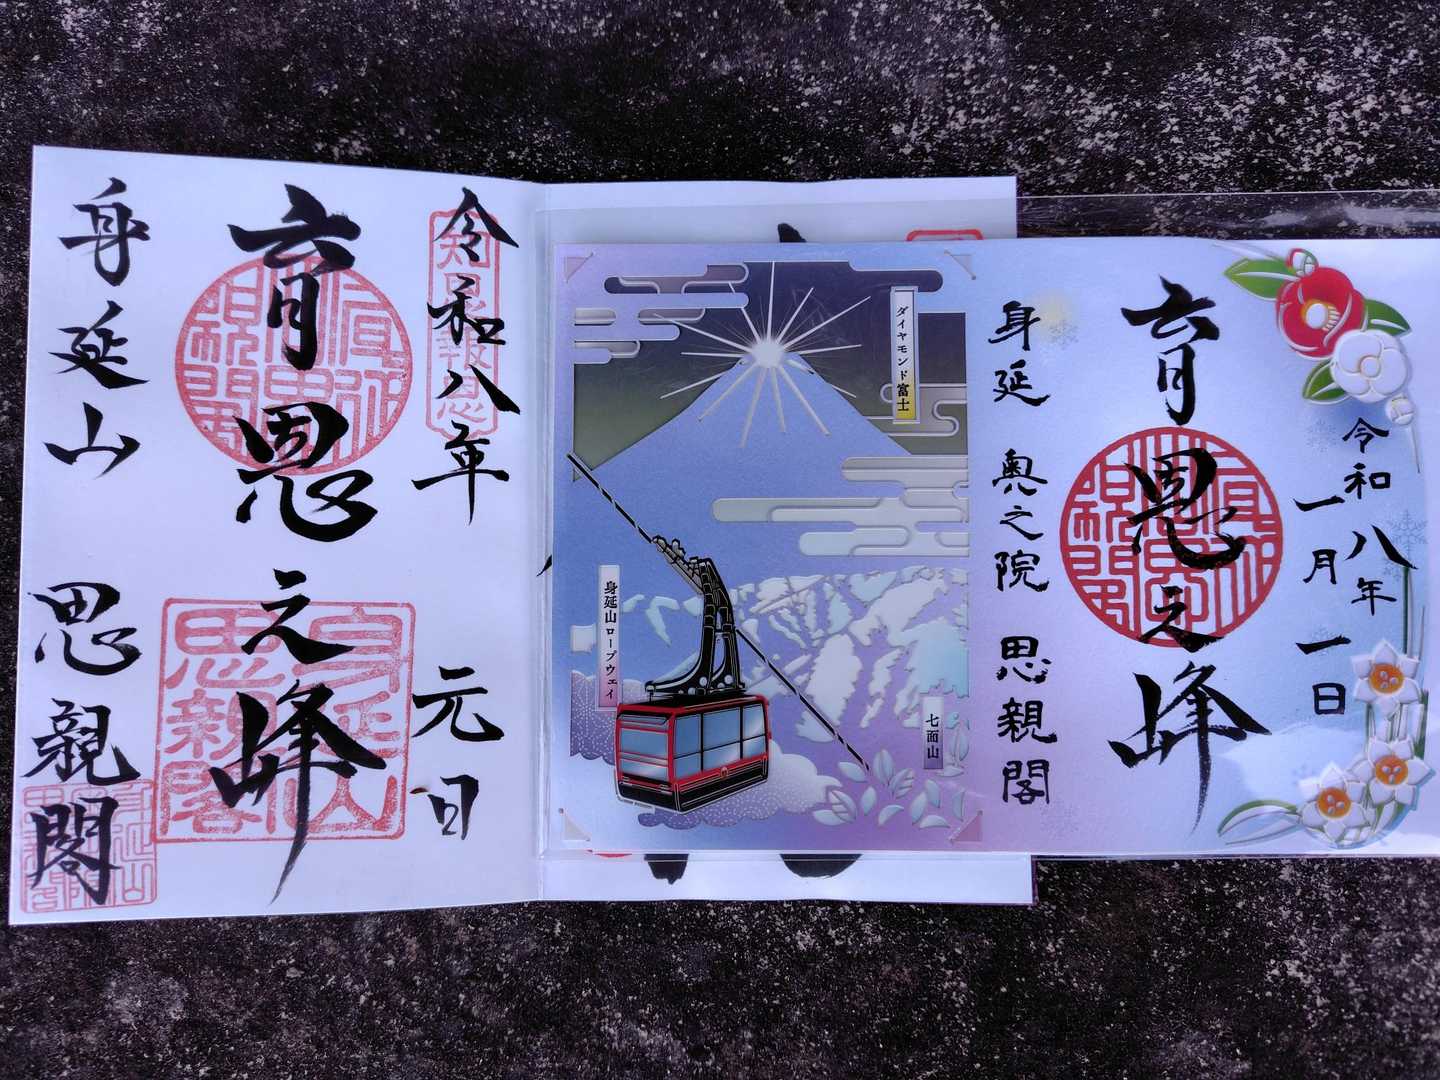 令和八年 元日
知恩報恩
育恩之峰
身延山
思親閣
身延山 思親閣
ダイヤモンド富士
身延山ロープウェイ
七面山
令和八年
一月一日
育恩之峰
身延 奥之院 思親閣